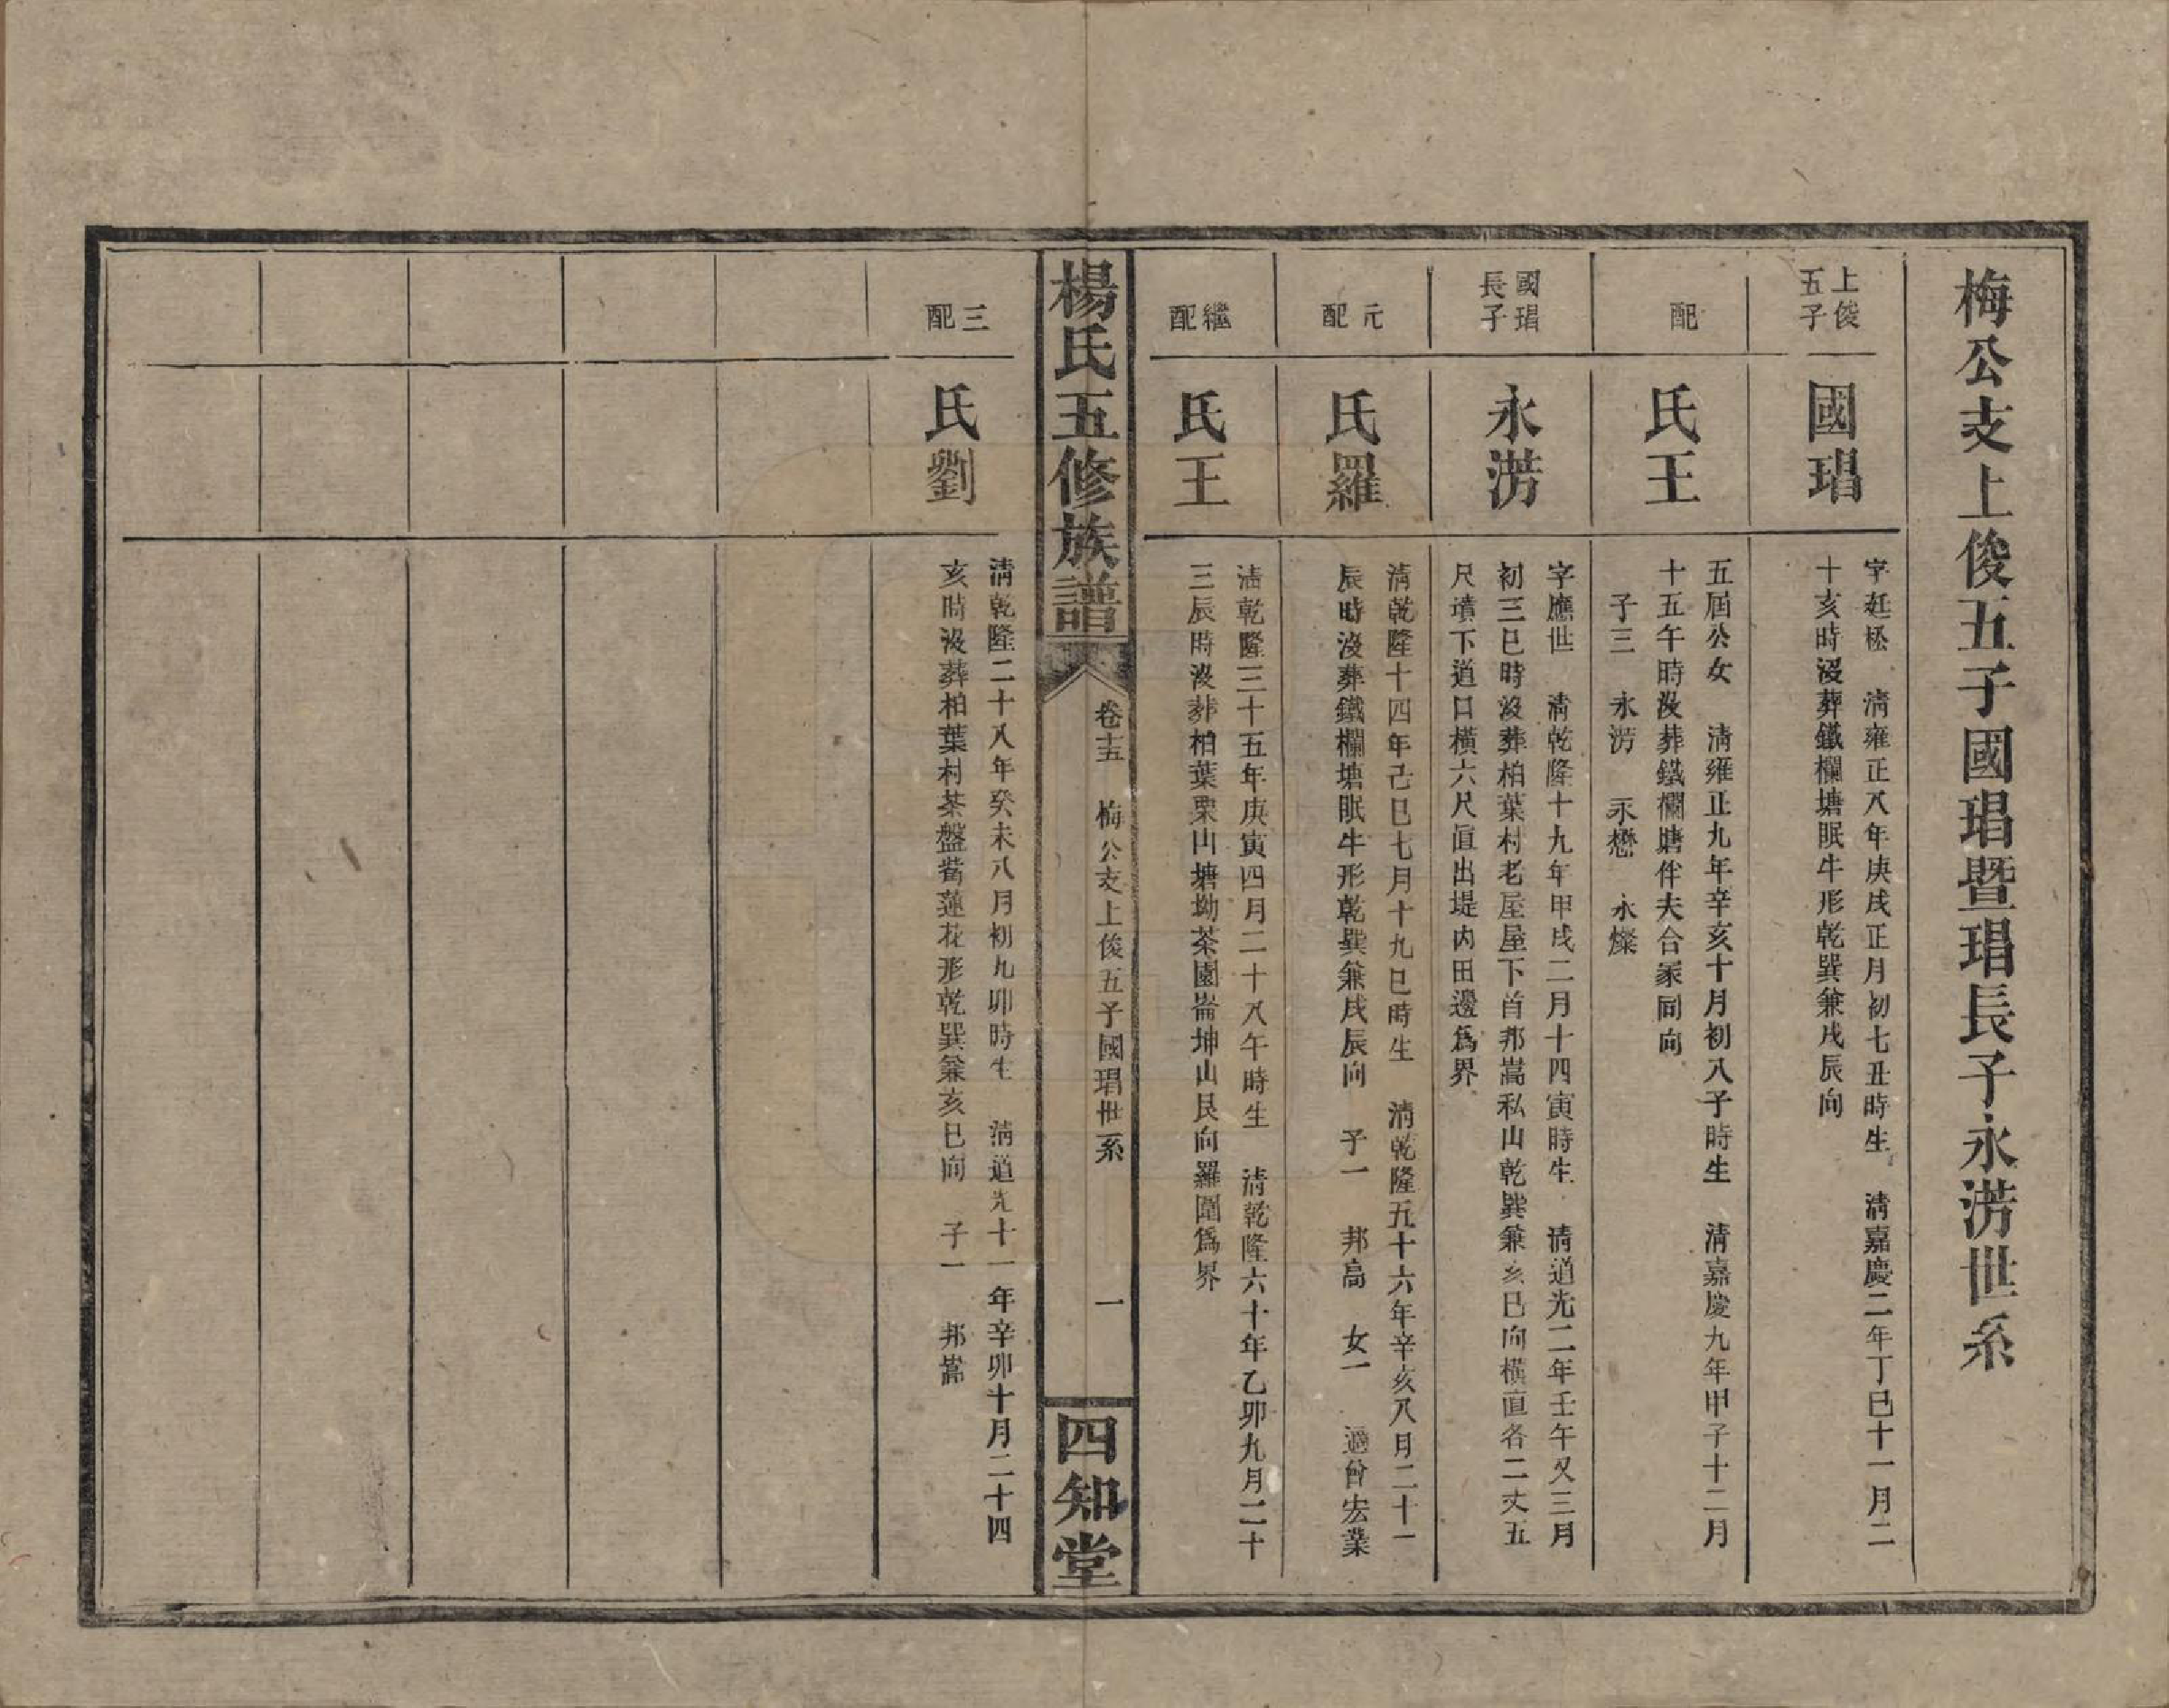 梅公支上俊五子國琩暨琩長子永淓世系
上俊
五子
國琩
字廷松　清雍正八年庚戌正月初七丑時生　清嘉慶二年丁巳十一月二
十亥時沒葬鐵欄塘眠牛形乾巽兼戌辰向
配
氏王
五屆公女　清雍正九年辛亥十月初八子時生　清嘉慶九年甲子十二月
十五午時沒葬鐵欄塘伴夫合冢同向
子三　永淓　永懋　永燦
國琩
長子
永淓
字應世　清乾隆十九年甲戌二月十四寅時生　清道光二年壬午又三月
初三巳時沒葬柏葉村老屋屋下首邦嵩私山乾巽兼亥巳向橫直各二丈五
尺墳下道口橫六尺直出堤內田邊爲界
元配
氏羅
清乾隆十四年己巳七月十九巳時生　清乾隆五十六年辛亥八月二十一
辰時沒葬鐵欄塘眠牛形乾巽兼戌辰向　子一　邦高　女一　適曾宏業
繼配
氏王
清乾隆三十五年庚寅四月二十八午時生　清乾隆六十年乙卯九月二十
三辰時沒葬柏葉栗山塘坳茶園崙坤山艮向羅圍爲界
楊氏五修族譜
卷十五　梅公支上俊五子國琩世系　一
四知堂
三配
氏劉
清乾隆二十八年癸未八月初九卯時生　清道光十一年辛卯十月二十四
亥時沒葬柏葉村茶盤蒥蓮花形乾巽兼亥巳向　子一　邦嵩